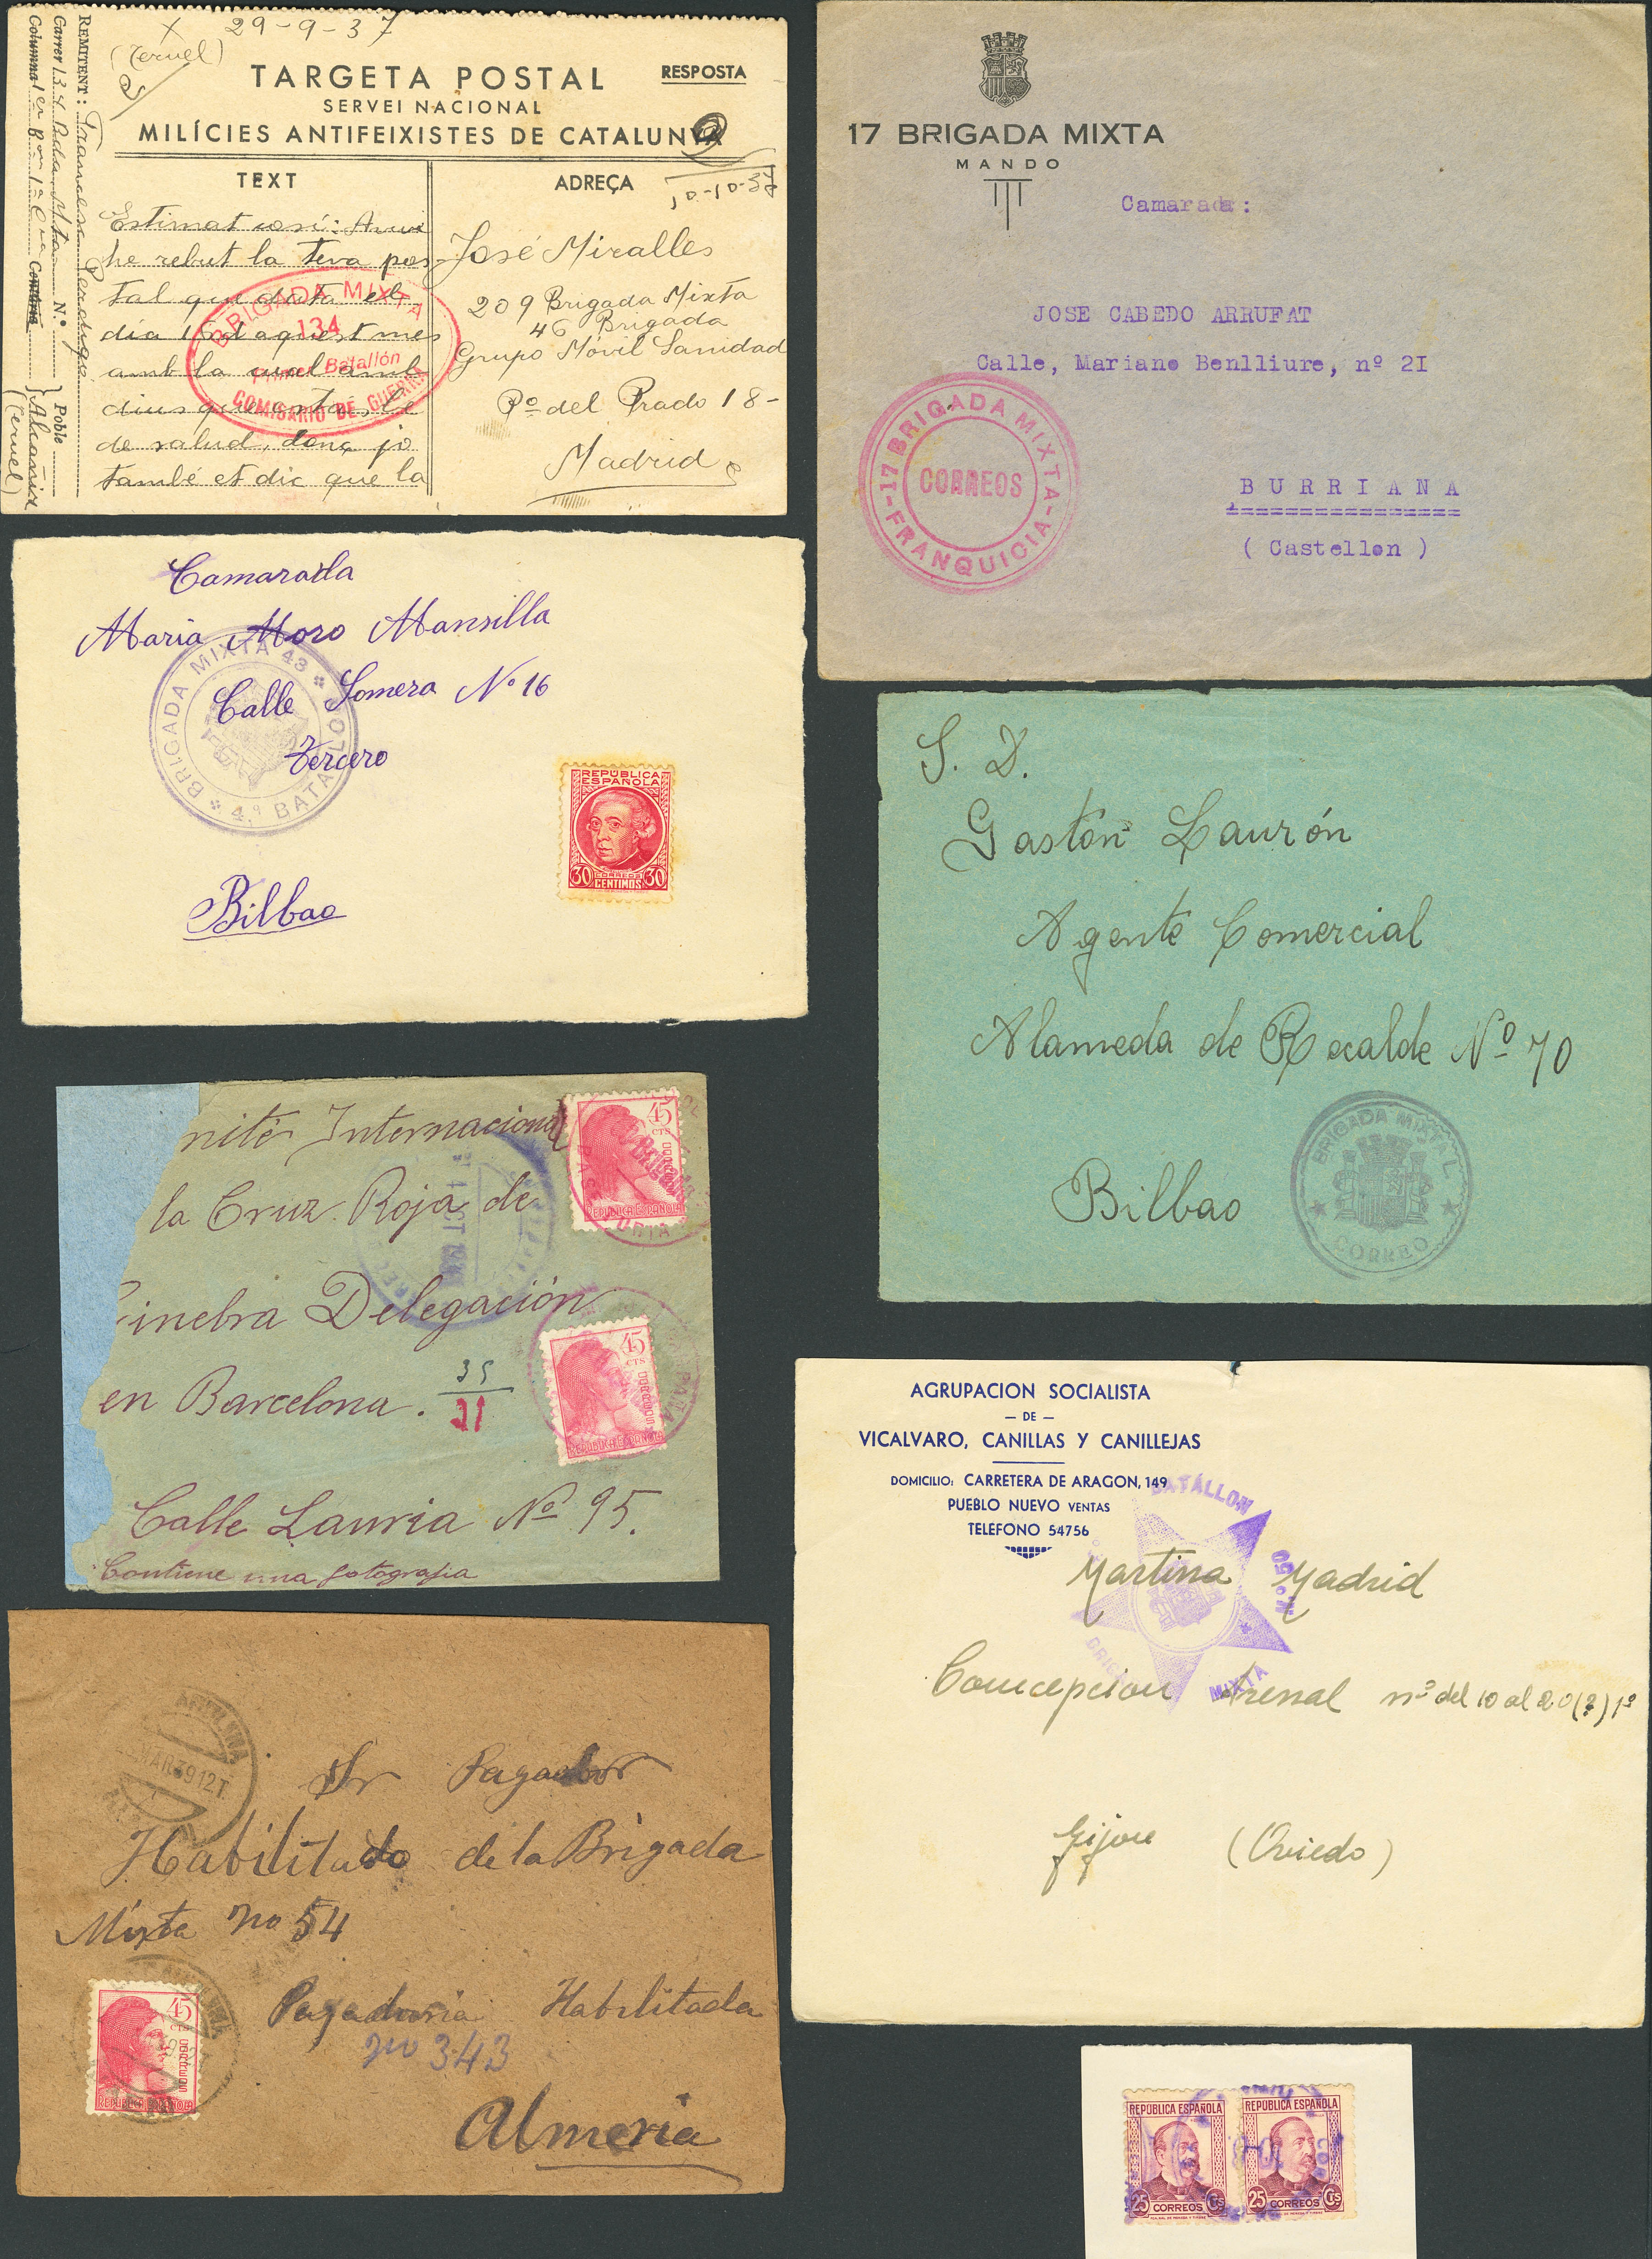 29-9-37
(Teruel)
TARGETA POSTAL
RESPOSTA
SERVEI NACIONAL
MILÍCIES ANTIFEIXISTES DE CATALUNYA
REMITENT: Francesc
Carrer 134 Bda. Mta. N.º Poble Alcañiz
Columna 1er Bon 1ª (Teruel)
TEXT
Estimat cosí: Avui
he rebut la teva pos-
tal que data el
dia 15 d'aquest mes
amb la cual amb
dius que estas be
de salud, donç jo
també et dic que la
BRIGADA MIXTA
134
Primer Batallón
COMISARIO DE GUERRA
ADREÇA
10-10-37
José Miralles
209 Brigada Mixta
46 Brigada
Grupo Móvil Sanidad
Pº del Prado 18-
Madrid
17 BRIGADA MIXTA
MANDO
Camarada:
JOSE CABEDO ARRUFAT
Calle, Mariano Benlliure, nº 2I
BURRIANA
(Castellon)
17 BRIGADA MIXTA
CORREOS
FRANQUICIA
Camarada
Maria Moro Mansilla
Calle Somera Nº 16
Tercero
Bilbao
BRIGADA MIXTA 43
4.º BATALLON
REPÚBLICA
ESPAÑOLA
30 CORREOS 30
CENTIMOS
S. D.
Gastón Laurón
Agente Comercial
Alameda de Recalde Nº 70
Bilbao
BRIGADA MIXTA
CORREO
nité Internacional
la Cruz Roja de
inebra Delegación
en Barcelona.
35
21
Calle Lauria Nº 95.
Contiene una fotografia
45
CTS
CORREOS
REPUBLICA ESPAÑOLA
45
CTS
CORREOS
REPUBLICA ESPAÑOLA
AGRUPACION SOCIALISTA
— DE —
VICALVARO, CANILLAS Y CANILLEJAS
DOMICILIO: CARRETERA DE ARAGON, 149
PUEBLO NUEVO VENTAS
TELEFONO 54756
BATALLON
N.º 50
MIXTA
Martina Madrid
Concepcion Arenal nº del 10 al 20 (?) 1º
Gijon (Oviedo)
MAR.39 12T
Sr Pagador
Habilitado de la Brigada
Mixta no 54
Pagaduria Habilitada
no 343
Almeria
45
CTS
CORREOS
REPUBLICA ESPAÑOLA
REPÚBLICA ESPAÑOLA
25 CORREOS Cts
REPÚBLICA ESPAÑOLA
25 CORREOS Cts